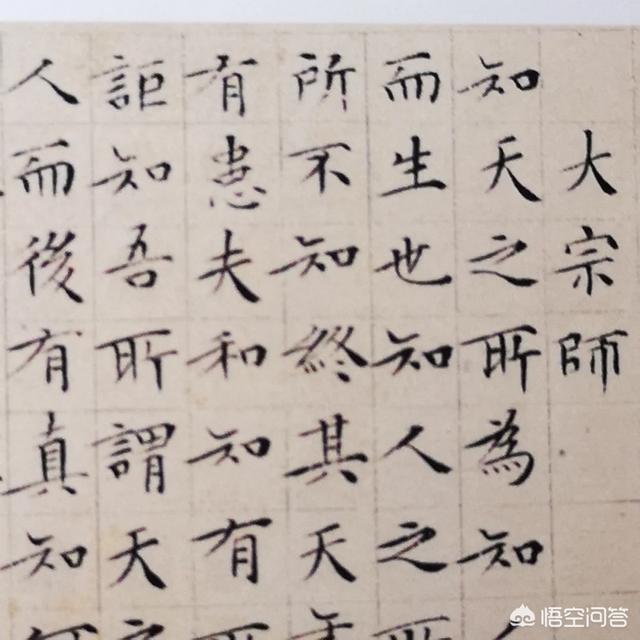 大宗師
知天之所為知
而生也知人之
所不知終其天
有患夫和知有
詎知吾所謂天
人而後有真知
悟空问答